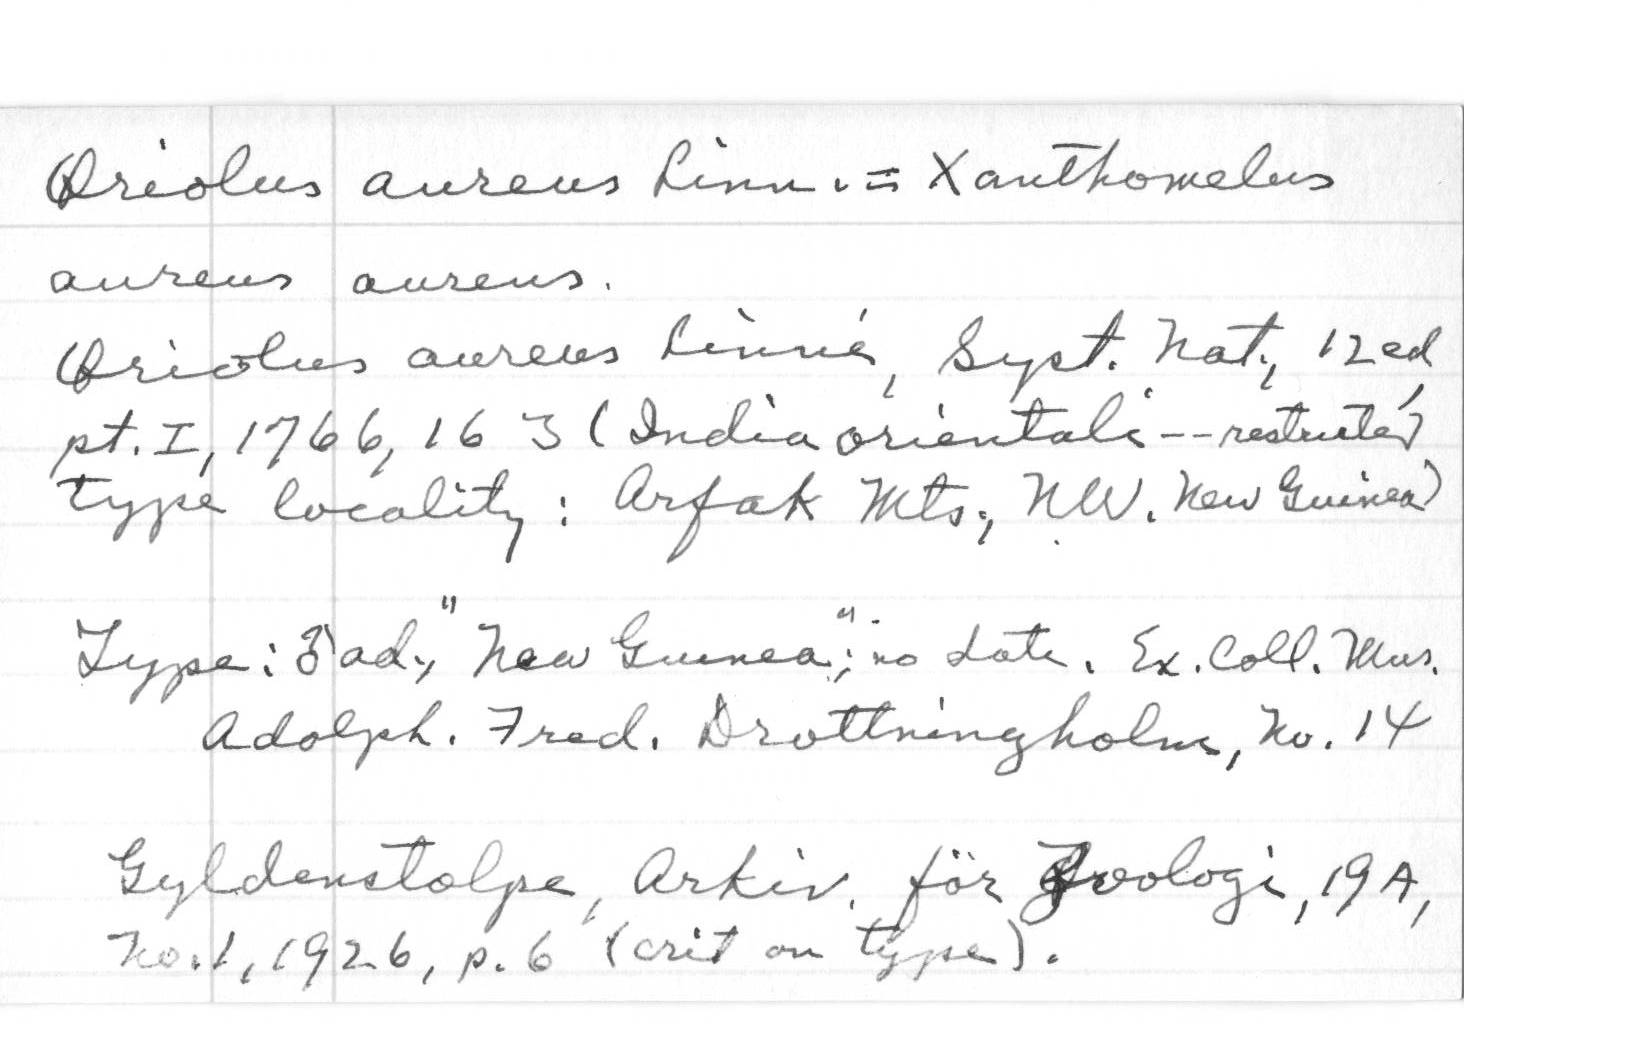 Oriolus aureus Linn. = Xanthomelus
aureus aureus.
Oriolus aureus Linné, Syst. Nat., 12 ed,
pt. I, 1766, 163 (India orientali -- restricted
type locality: Arfak Mts., NW. New Guinea)
Type: ♂ ad., "New Guinea"; no date. Ex. Coll. Mus.
Adolph. Fred. Drottningholm, No. 14
Gyldenstolpe, Arkiv. för Zoologi, 19A,
No. 1, 1926, p. 6 (crit on type).